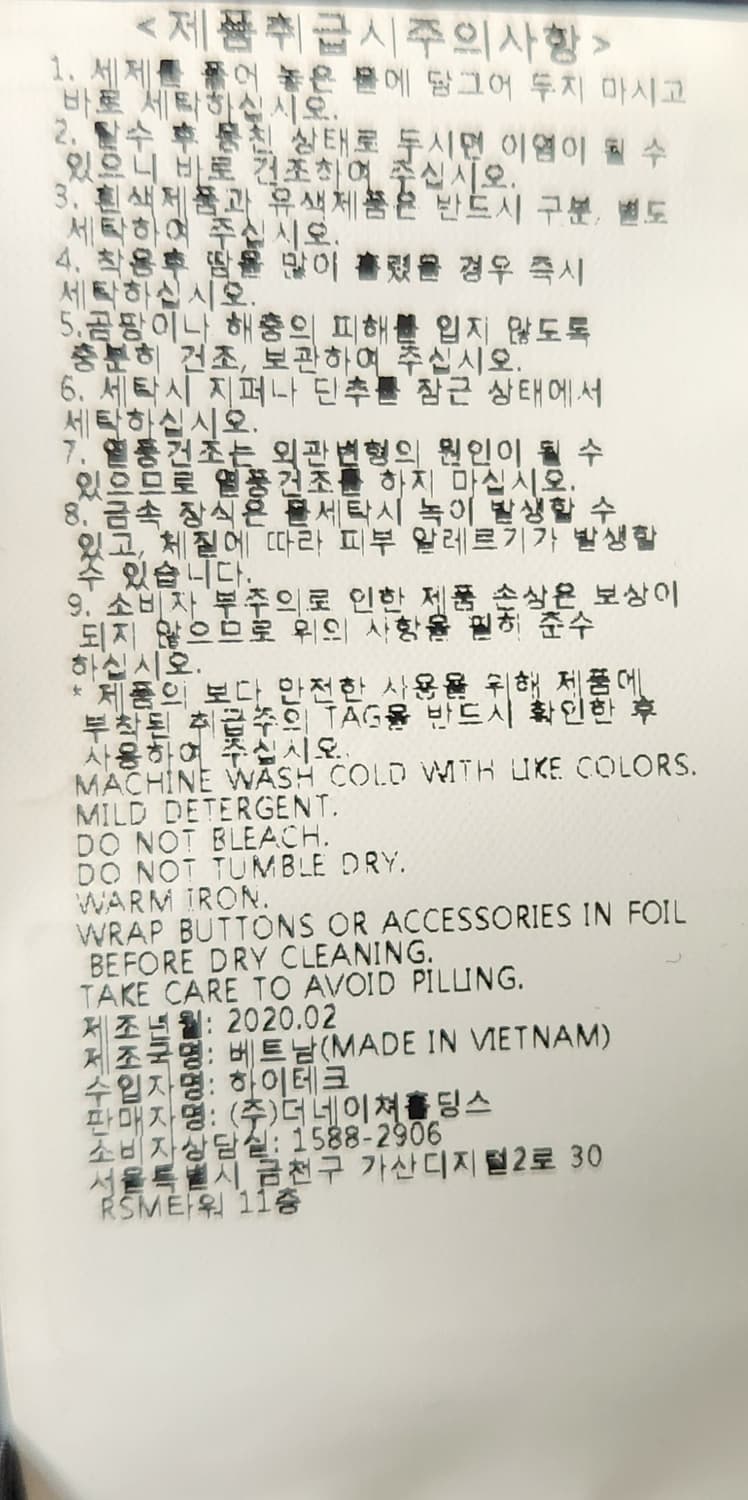 <제품취급시주의사항>
1. 세제를 풀어 놓은 물에 담그어 두지 마시고
바로 세탁하십시오.
2. 탈수 후 뭉친 상태로 두시면 이염이 될 수
있으니 바로 건조하여 주십시오.
3. 흰색제품과 유색제품은 반드시 구분, 별도
세탁하여 주십시오.
4. 착용후 땀을 많이 흘렸을 경우 즉시
세탁하십시오.
5.곰팡이나 해충의 피해를 입지 않도록
충분히 건조, 보관하여 주십시오.
6. 세탁시 지퍼나 단추를 잠근 상태에서
세탁하십시오.
7. 열풍건조는 외관변형의 원인이 될 수
있으므로 열풍건조를 하지 마십시오.
8. 금속 장식은 물세탁시 녹이 발생할 수
있고, 체질에 따라 피부 알레르기가 발생할
수 있습니다.
9. 소비자 부주의로 인한 제품 손상은 보상이
되지 않으므로 위의 사항을 필히 준수
하십시오.
* 제품의 보다 안전한 사용을 위해 제품에
부착된 취급주의 TAG을 반드시 확인한 후
사용하여 주십시오.
MACHINE WASH COLD WITH LIKE COLORS.
MILD DETERGENT.
DO NOT BLEACH.
DO NOT TUMBLE DRY.
WARM IRON.
WRAP BUTTONS OR ACCESSORIES IN FOIL
BEFORE DRY CLEANING.
TAKE CARE TO AVOID PILLING.
제조년월: 2020.02
제조국명: 베트남(MADE IN VIETNAM)
수입자명: 하이테크
판매자명: (주)더네이쳐홀딩스
소비자상담실: 1588-2906
서울특별시 금천구 가산디지털2로 30
RSM타워 11층